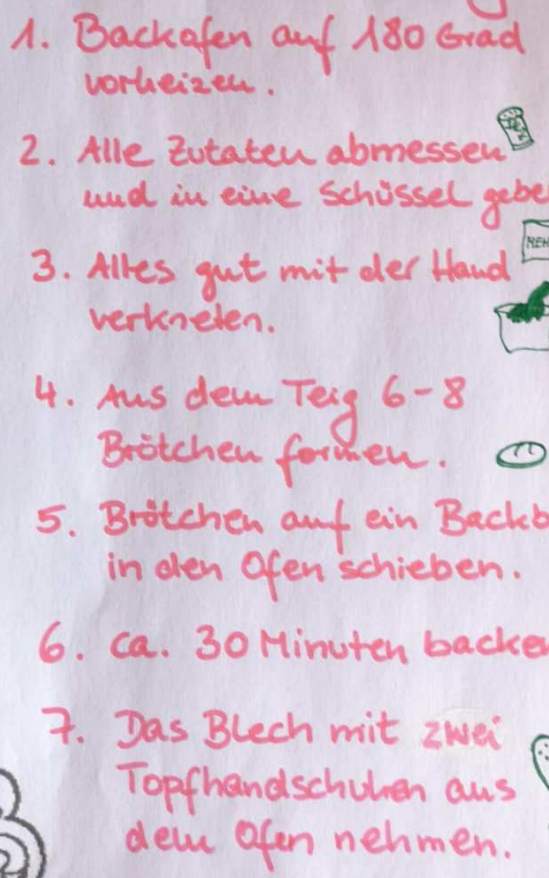 1. Backofen auf 180 Grad
vorheizen.
2. Alle Zutaten abmessen
und in eine Schüssel gebe
3. Alles gut mit der Hand
verkneten.
4. Aus dem Teig 6-8
Brötchen formen.
5. Brötchen auf ein Backb
in den Ofen schieben.
6. ca. 30 Minuten backe
7. Das Blech mit zwei
Topfhandschuhen aus
dem Ofen nehmen.